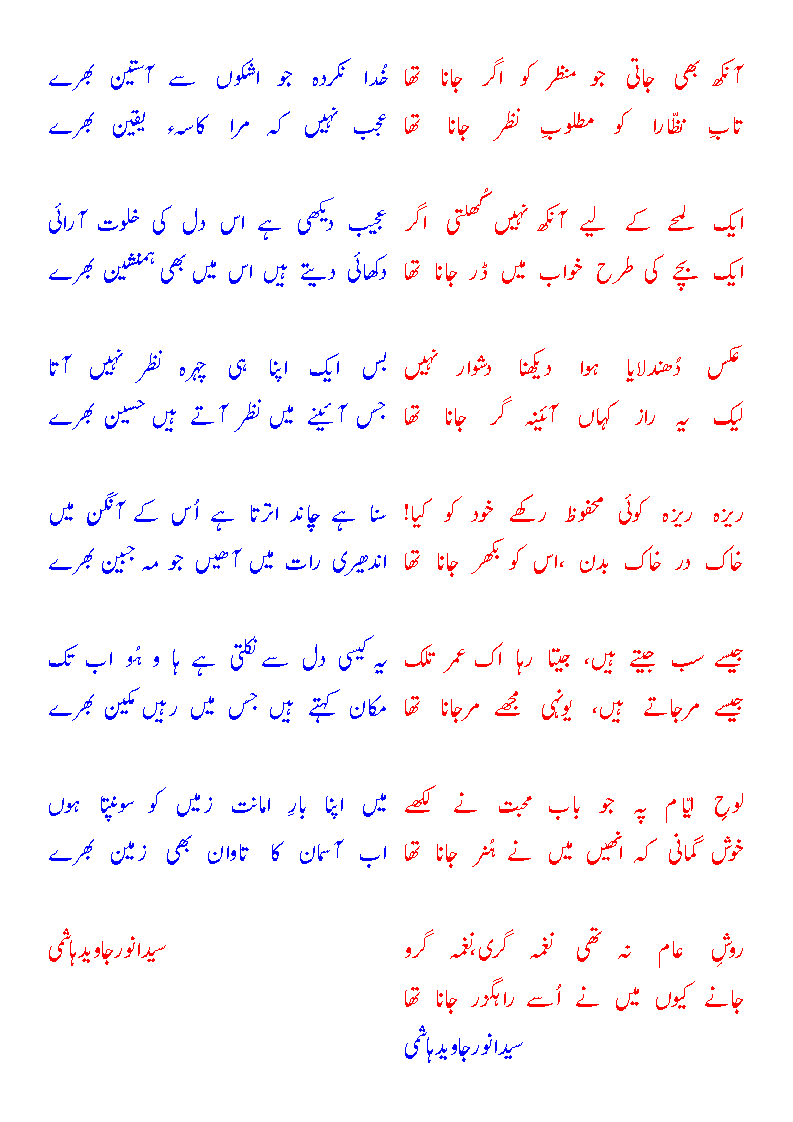 آنکھ بھی جاتی جو منظر کو اگر جانا تھا
تابِ نظّارا کو مطلوبِ نظر جانا تھا
ایک لمحے کے لیے آنکھ نہیں کُھلتی اگر
ایک بچے کی طرح خواب میں ڈر جانا تھا
عکس دُھندلایا ہوا دیکھنا دشوار نہیں
لیک یہ راز کہاں آئینہ گر جانا تھا
ریزہ ریزہ کوئی محفوظ رکھے خود کو کیا!
خاک در خاک بدن ،اس کو بکھر جانا تھا
جیسے سب جیتے ہیں، جیتا رہا اک عمر تلک
جیسے مرجاتے ہیں، یونہی مجھے مرجانا تھا
لوحِ ایّام پہ جو باب محبت نے لکھے
خوش گمانی کہ انھیں میں نے ہُنر جانا تھا
روشِ عام نہ تھی نغمہ گری،نغمہ گرو
جانے کیوں میں نے اُسے راہگزر جانا تھا
سیدانورجاویدہاشمی
خُدا نکردہ جو اشکوں سے آستین بھرے
عجب نہیں کہ مرا کاسہء یقین بھرے
عجیب دیکھی ہے اس دل کی خلوت آرائی
دکھائی دیتے ہیں اس میں بھی ہمنشین بھرے
بس ایک اپنا ہی چہرہ نظر نہیں آتا
جس آئینے میں نظر آتے ہیں حسین بھرے
سنا ہے چاند اترتا ہے اُس کے آنگن میں
اندھیری رات میں آھیں جو مہ جبین بھرے
یہ کیسی دل سے نکلتی ہے ہا و ہُو اب تک
مکان کہتے ہیں جس میں رہیں مکین بھرے
میں اپنا بارِ امانت زمیں کو سونپتا ہوں
اب آسمان کا تاوان بھی زمین بھرے
سیدانورجاویدہاشمی